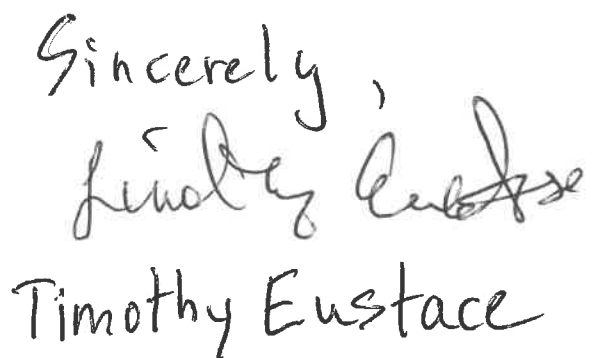 Sincerely,
Timothy Eustace
Timothy Eustace